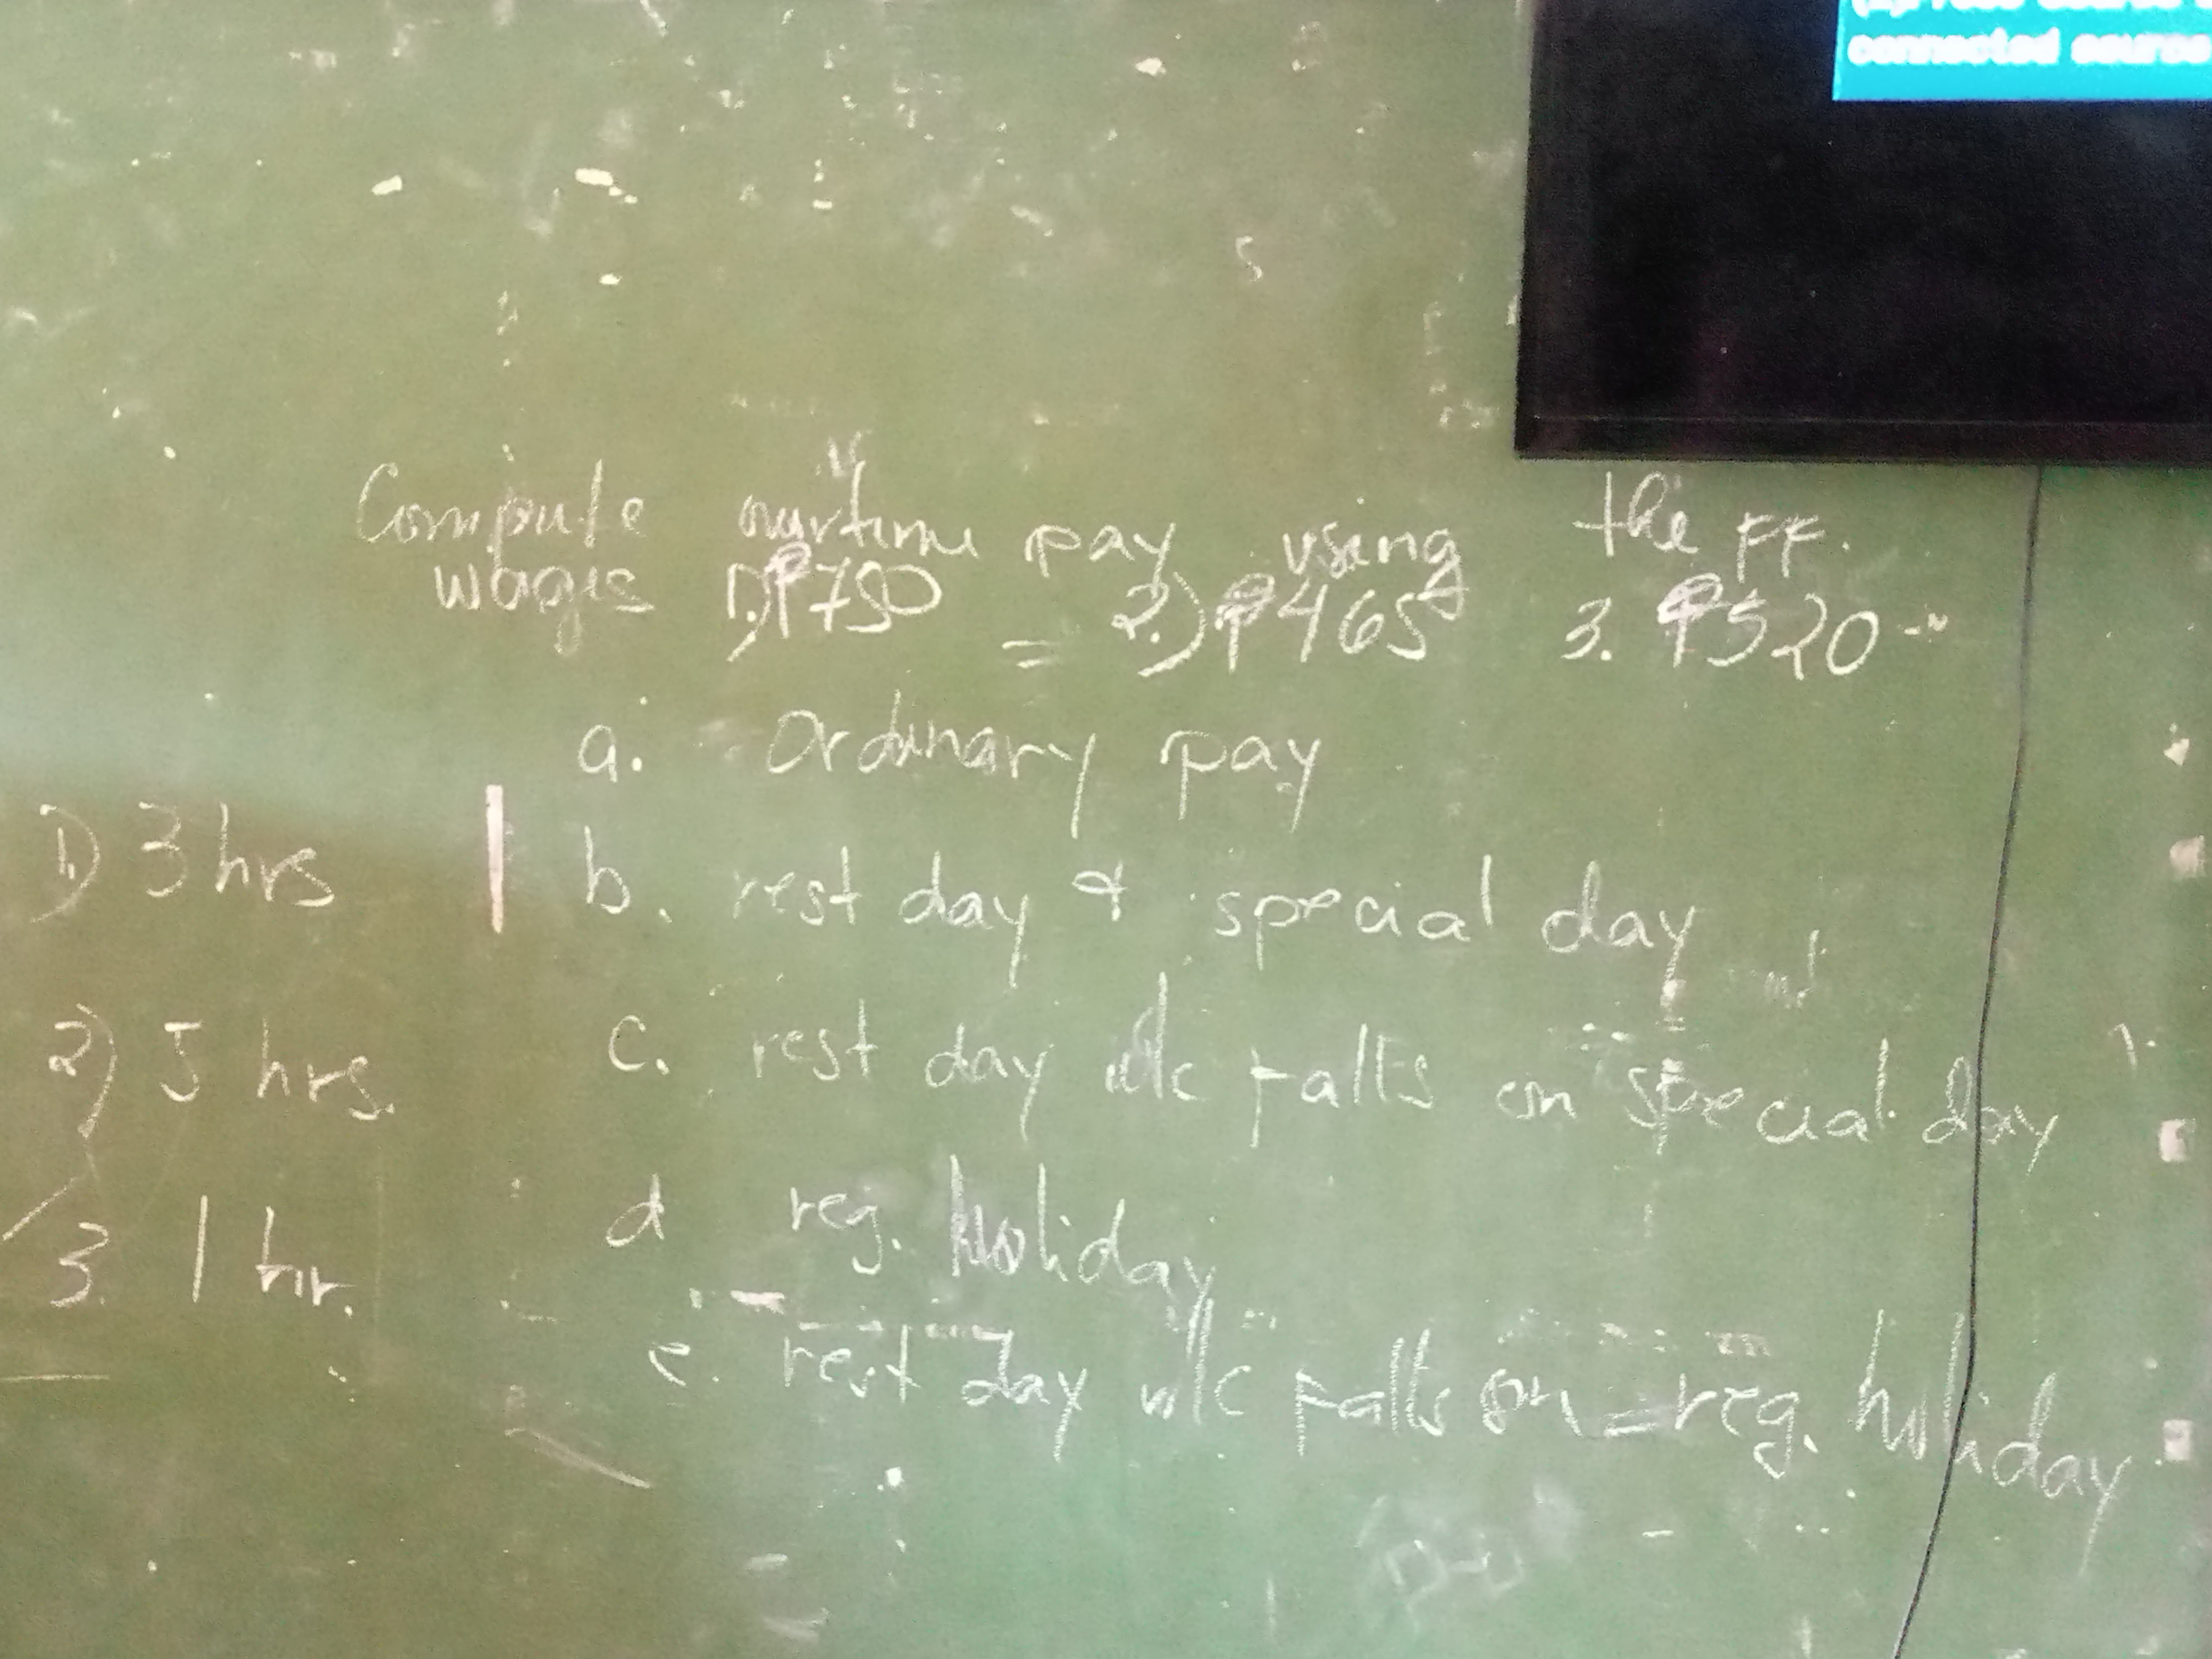 connected source
Compute overtime pay using the FF.
wages 1.) ₱750 = 2.) ₱465 3. ₱520
a. Ordinary pay
1) 3 hrs b. rest day & special day
c. rest day w/c falls on special day
2) 5 hrs.
d reg. holiday
3. 1 hr.
e. rest day w/c falls on reg. holiday